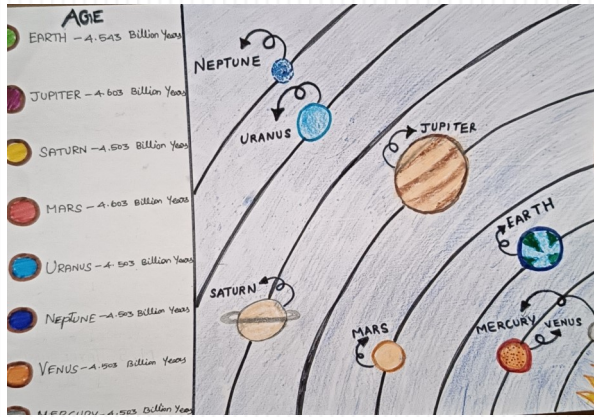 AGE
EARTH - 4.543 Billion Years
JUPITER - 4.603 Billion Years
SATURN - 4.503 Billion Years
MARS - 4.603 Billion Years
URANUS - 4.503 Billion Years
NEPTUNE - 4.503 Billion Years
VENUS - 4.503 Billion Years
MERCURY - 4.503 Billion Years
NEPTUNE
URANUS
JUPITER
EARTH
SATURN
MARS
MERCURY
VENUS